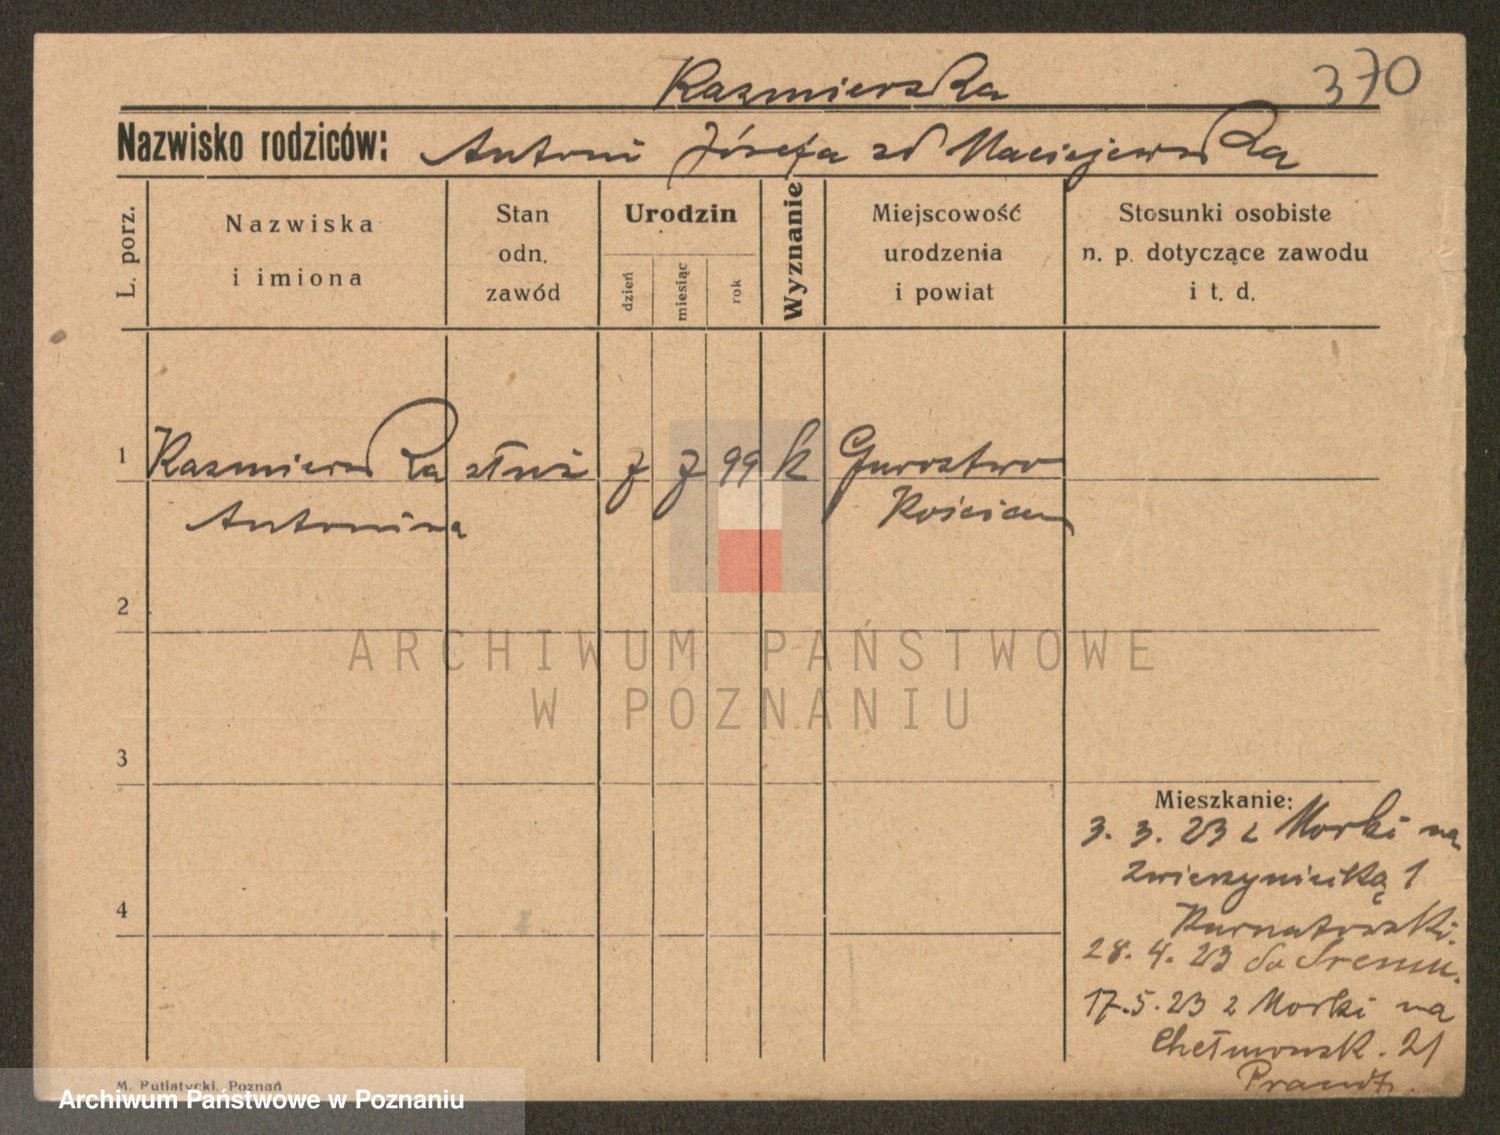 Kazmierska
370
Nazwisko rodziców: Antoni Józefa zd Maciejewska
L. porz.
Nazwiska
i imiona
Stan
odn.
zawód
Urodzin
dzień
miesiąc
rok
Wyznanie
Miejscowość
urodzenia
i powiat
Stosunki osobiste
n. p. dotyczące zawodu
i t. d.
1 Kazmierska służ 7 7 99 k Gurostwo
Antonina Kościan
2
ARCHIWUM PAŃSTWOWE
W POZNANIU
3
4
Mieszkanie:
3. 3. 23 z Morki na
Zwierzyniecką 1
Kurnatowski.
28. 4. 23 do Sremu.
17.5.23 z Morki na
Chełmonsk. 21
Prandt.
M. Putiatycki, Poznań
Archiwum Państwowe w Poznaniu